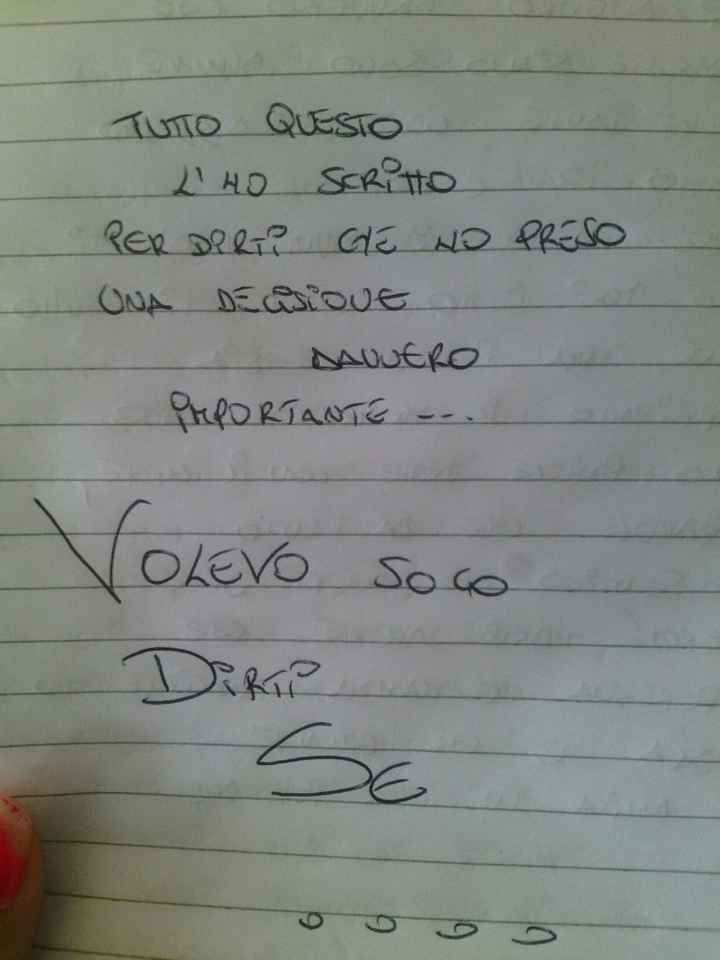 TUTTO QUESTO
L'HO SCRITTO
PER DIRTI CHE HO PRESO
UNA DECISIONE
DAVVERO
IMPORTANTE ---.
VOLEVO SOLO
DIRTI
SE
. . . .